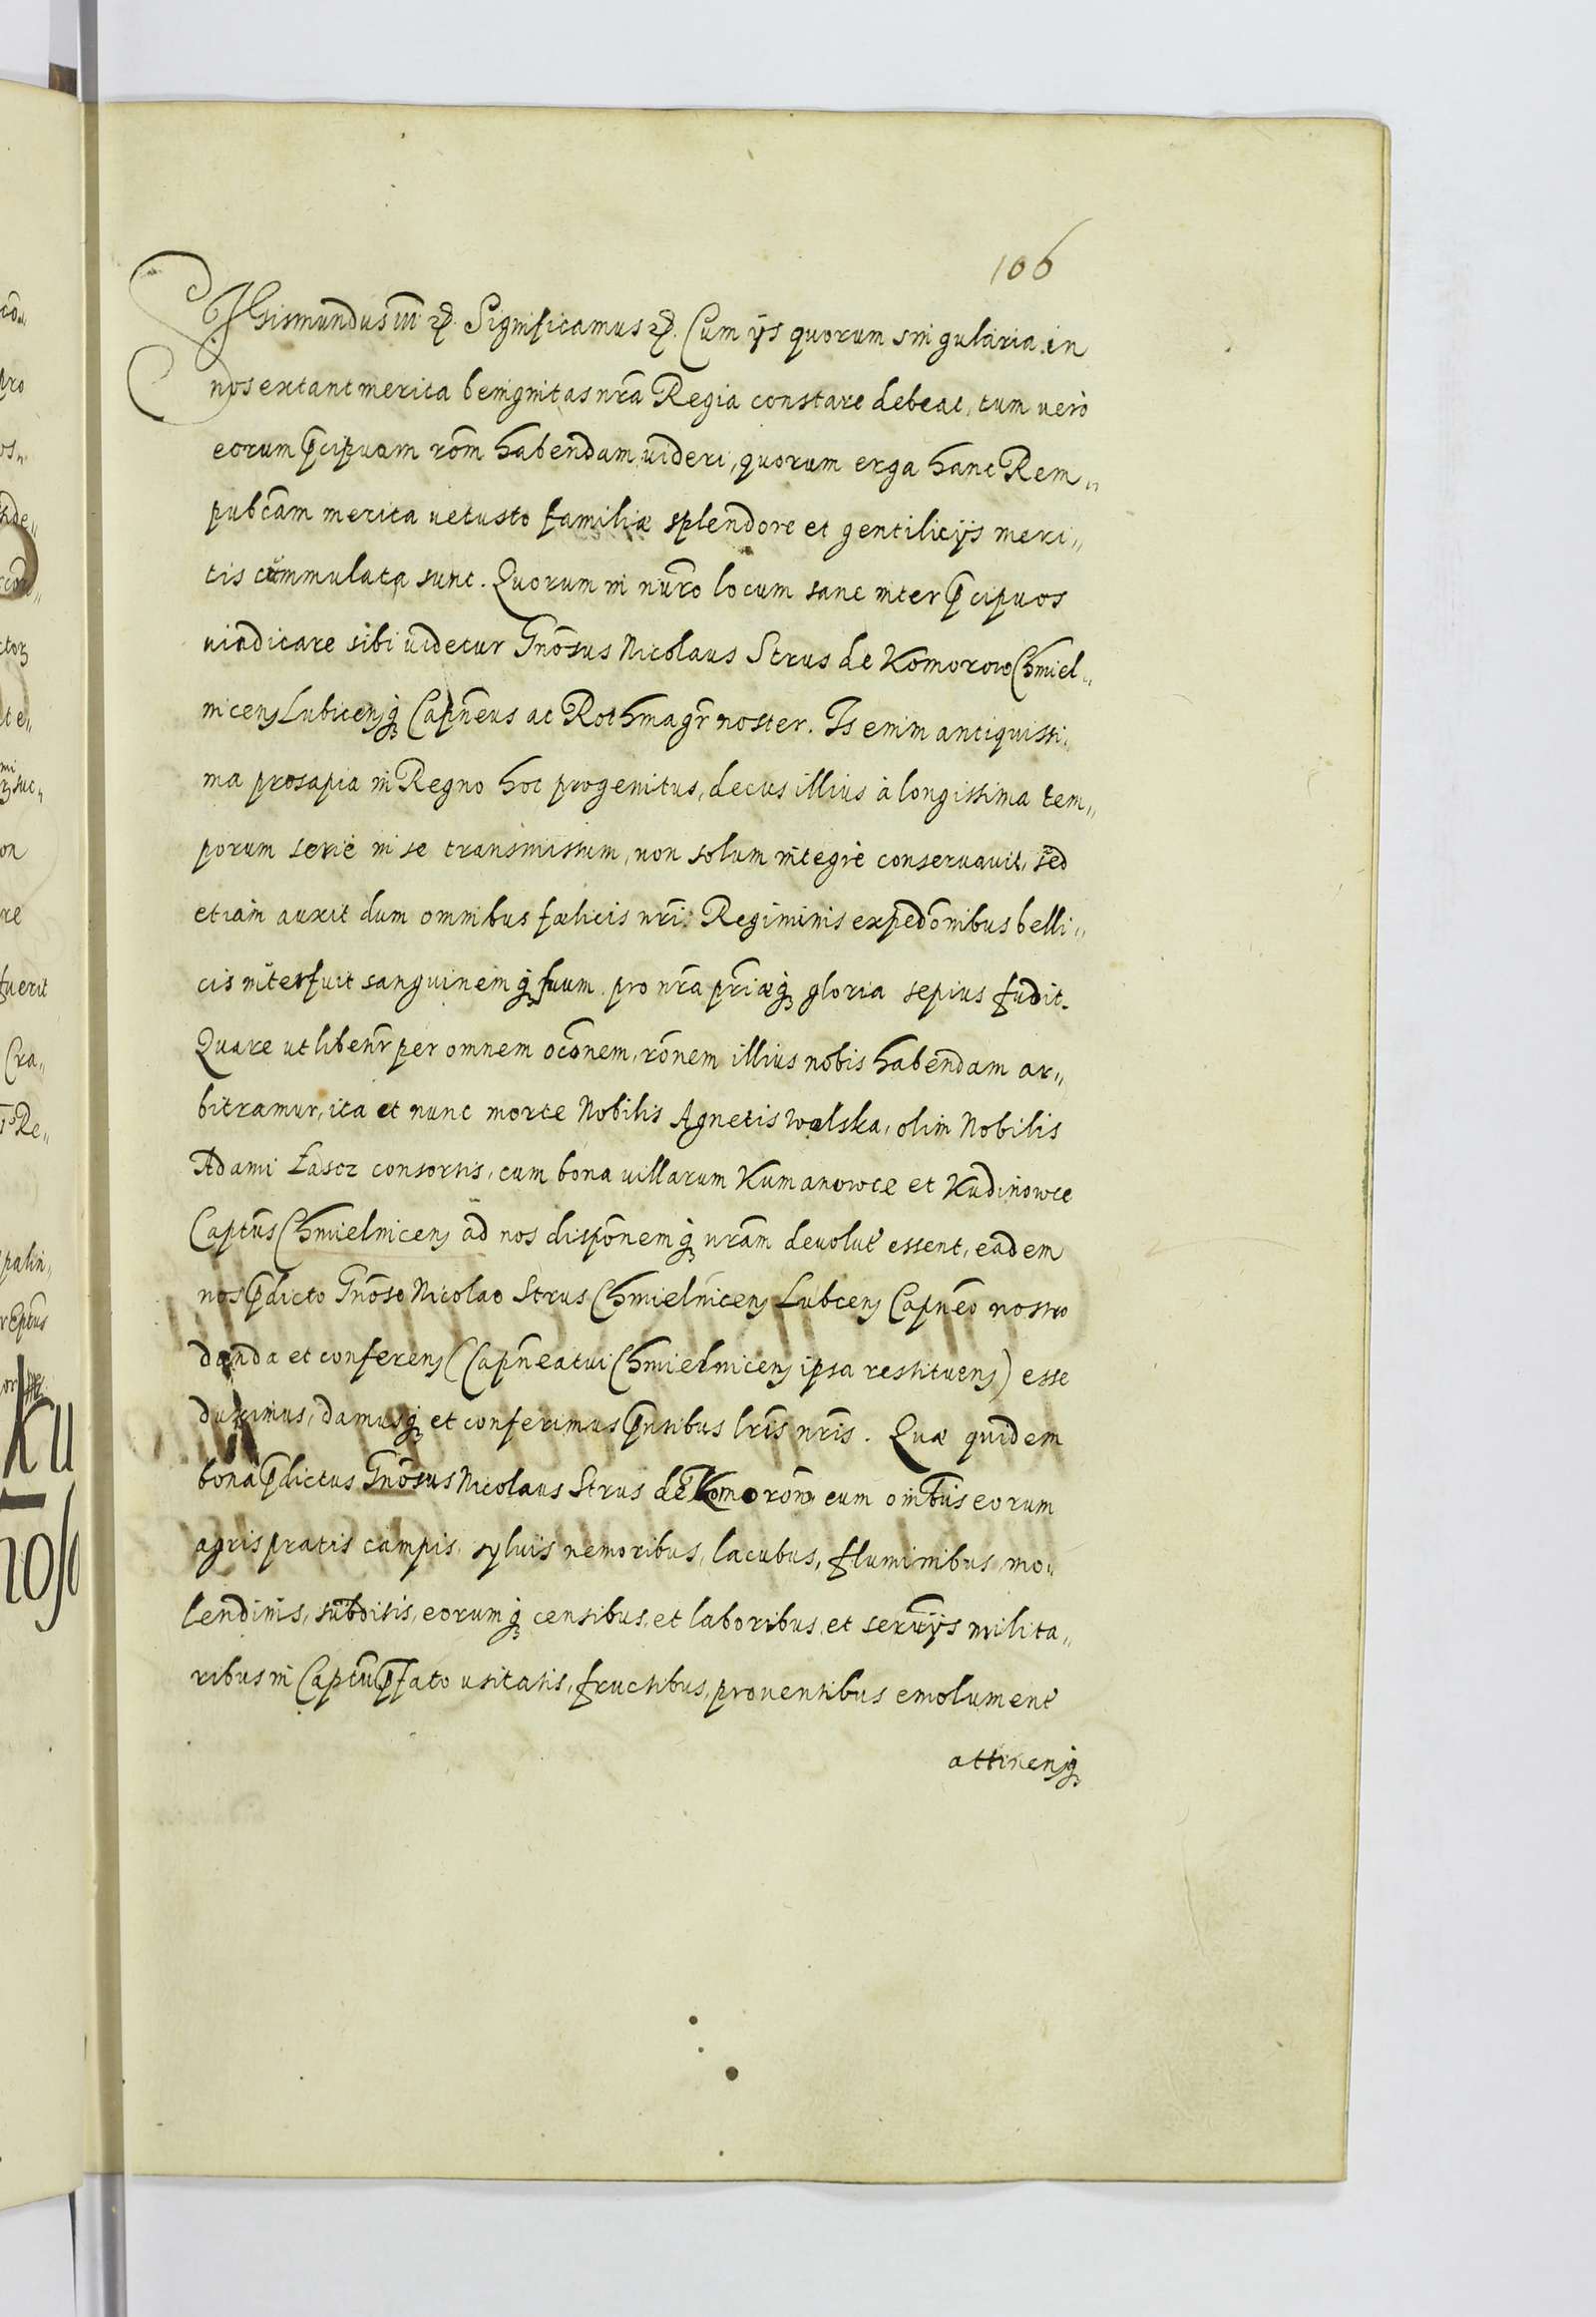 106
Sigismundus III etc. Significamus etc. Cum ijs quorum singularia in
nos extant merita benignitas nra Regia constare debeat, tum vero
eorum pcipuam rōm habendam videri, quorum erga hanc Rem„
pubcam merita vetusto familiæ splendore et gentilicijs meri„
tis cummulata sunt. Quorum in nūro locum sane inter pcipuos
vindicare sibi videtur Gnōsus Nicolaus Strus de Komorow Chmiel„
nicen Lubicenq Capneus ac Rothmagr noster. Is enim antiquissi„
ma prosapia in Regno hoc progenitus, decus illius à longissima tem„
porum serie in se transmissum, non solum integre conservavit, sed
etiam auxit dum omnibus fœlicis nri Regiminis expedōnibus belli„
cis interfuit sanguinemq suum pro nra priæq gloria sepius fudit.
Quare ut libenr per omnem ocōnem, rōnem illius nobis habendam ar„
bitramur, ita et nunc morte Nobilis Agnetis Wolska, olim Nobilis
Adami Łascz consortis, cum bona villarum Kumanowce et Kudinowce
Captus Chmielnicen ad nos dispōnemq nram devolut essent, eadem
nos pdicto Gnōso Nicolao Strus Chmielnicen Lubcen Capneo nostro
danda et conferen (Capneatui Chmielnicen ipsa restituen) esse
duximus, damusq et conferimus pntibus lris nris. Quæ quidem
bona pdictus Gnōsus Nicolaus Strus de Komorōw cum omībus eorum
agris pratis campis, sylvis nemoribus, lacubus, fluminibus, mo„
lendinis, subditis, eorumq censibus, et laboribus, et servijs milita„
ribus in Captu pfato usitatis, fructibus, proventibus emolument
attinenq